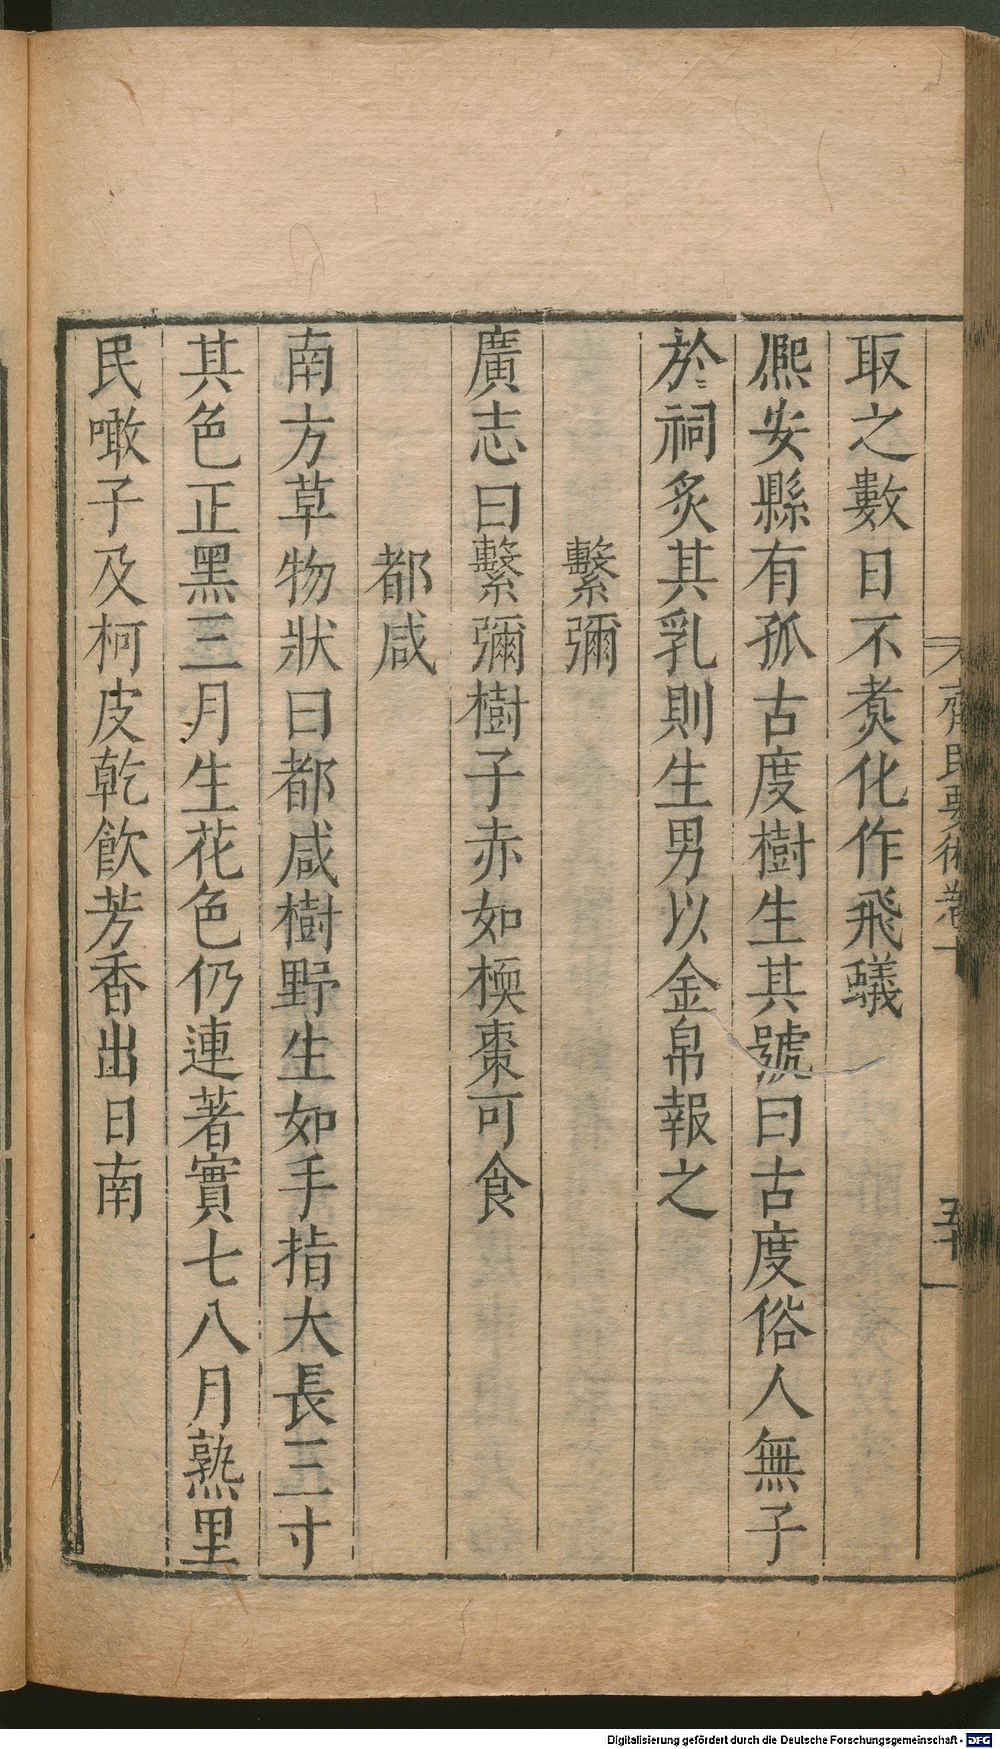 取之數日不煑化作飛蟻
熈安縣有孤古度樹生其號曰古度俗人無子
於祠炙其乳則生男以金帛報之
繫彌
廣志曰繫彌樹子赤如𣐈棗可食
都咸
南方草物狀曰都咸樹野生如手指大長三寸
其色正黑三月生花色仍連著實七八月熟里
民噉子及柯皮乾飲芳香出日南
齊民要術卷十
五十
Digitalisierung gefördert durch die Deutsche Forschungsgemeinschaft - DFG